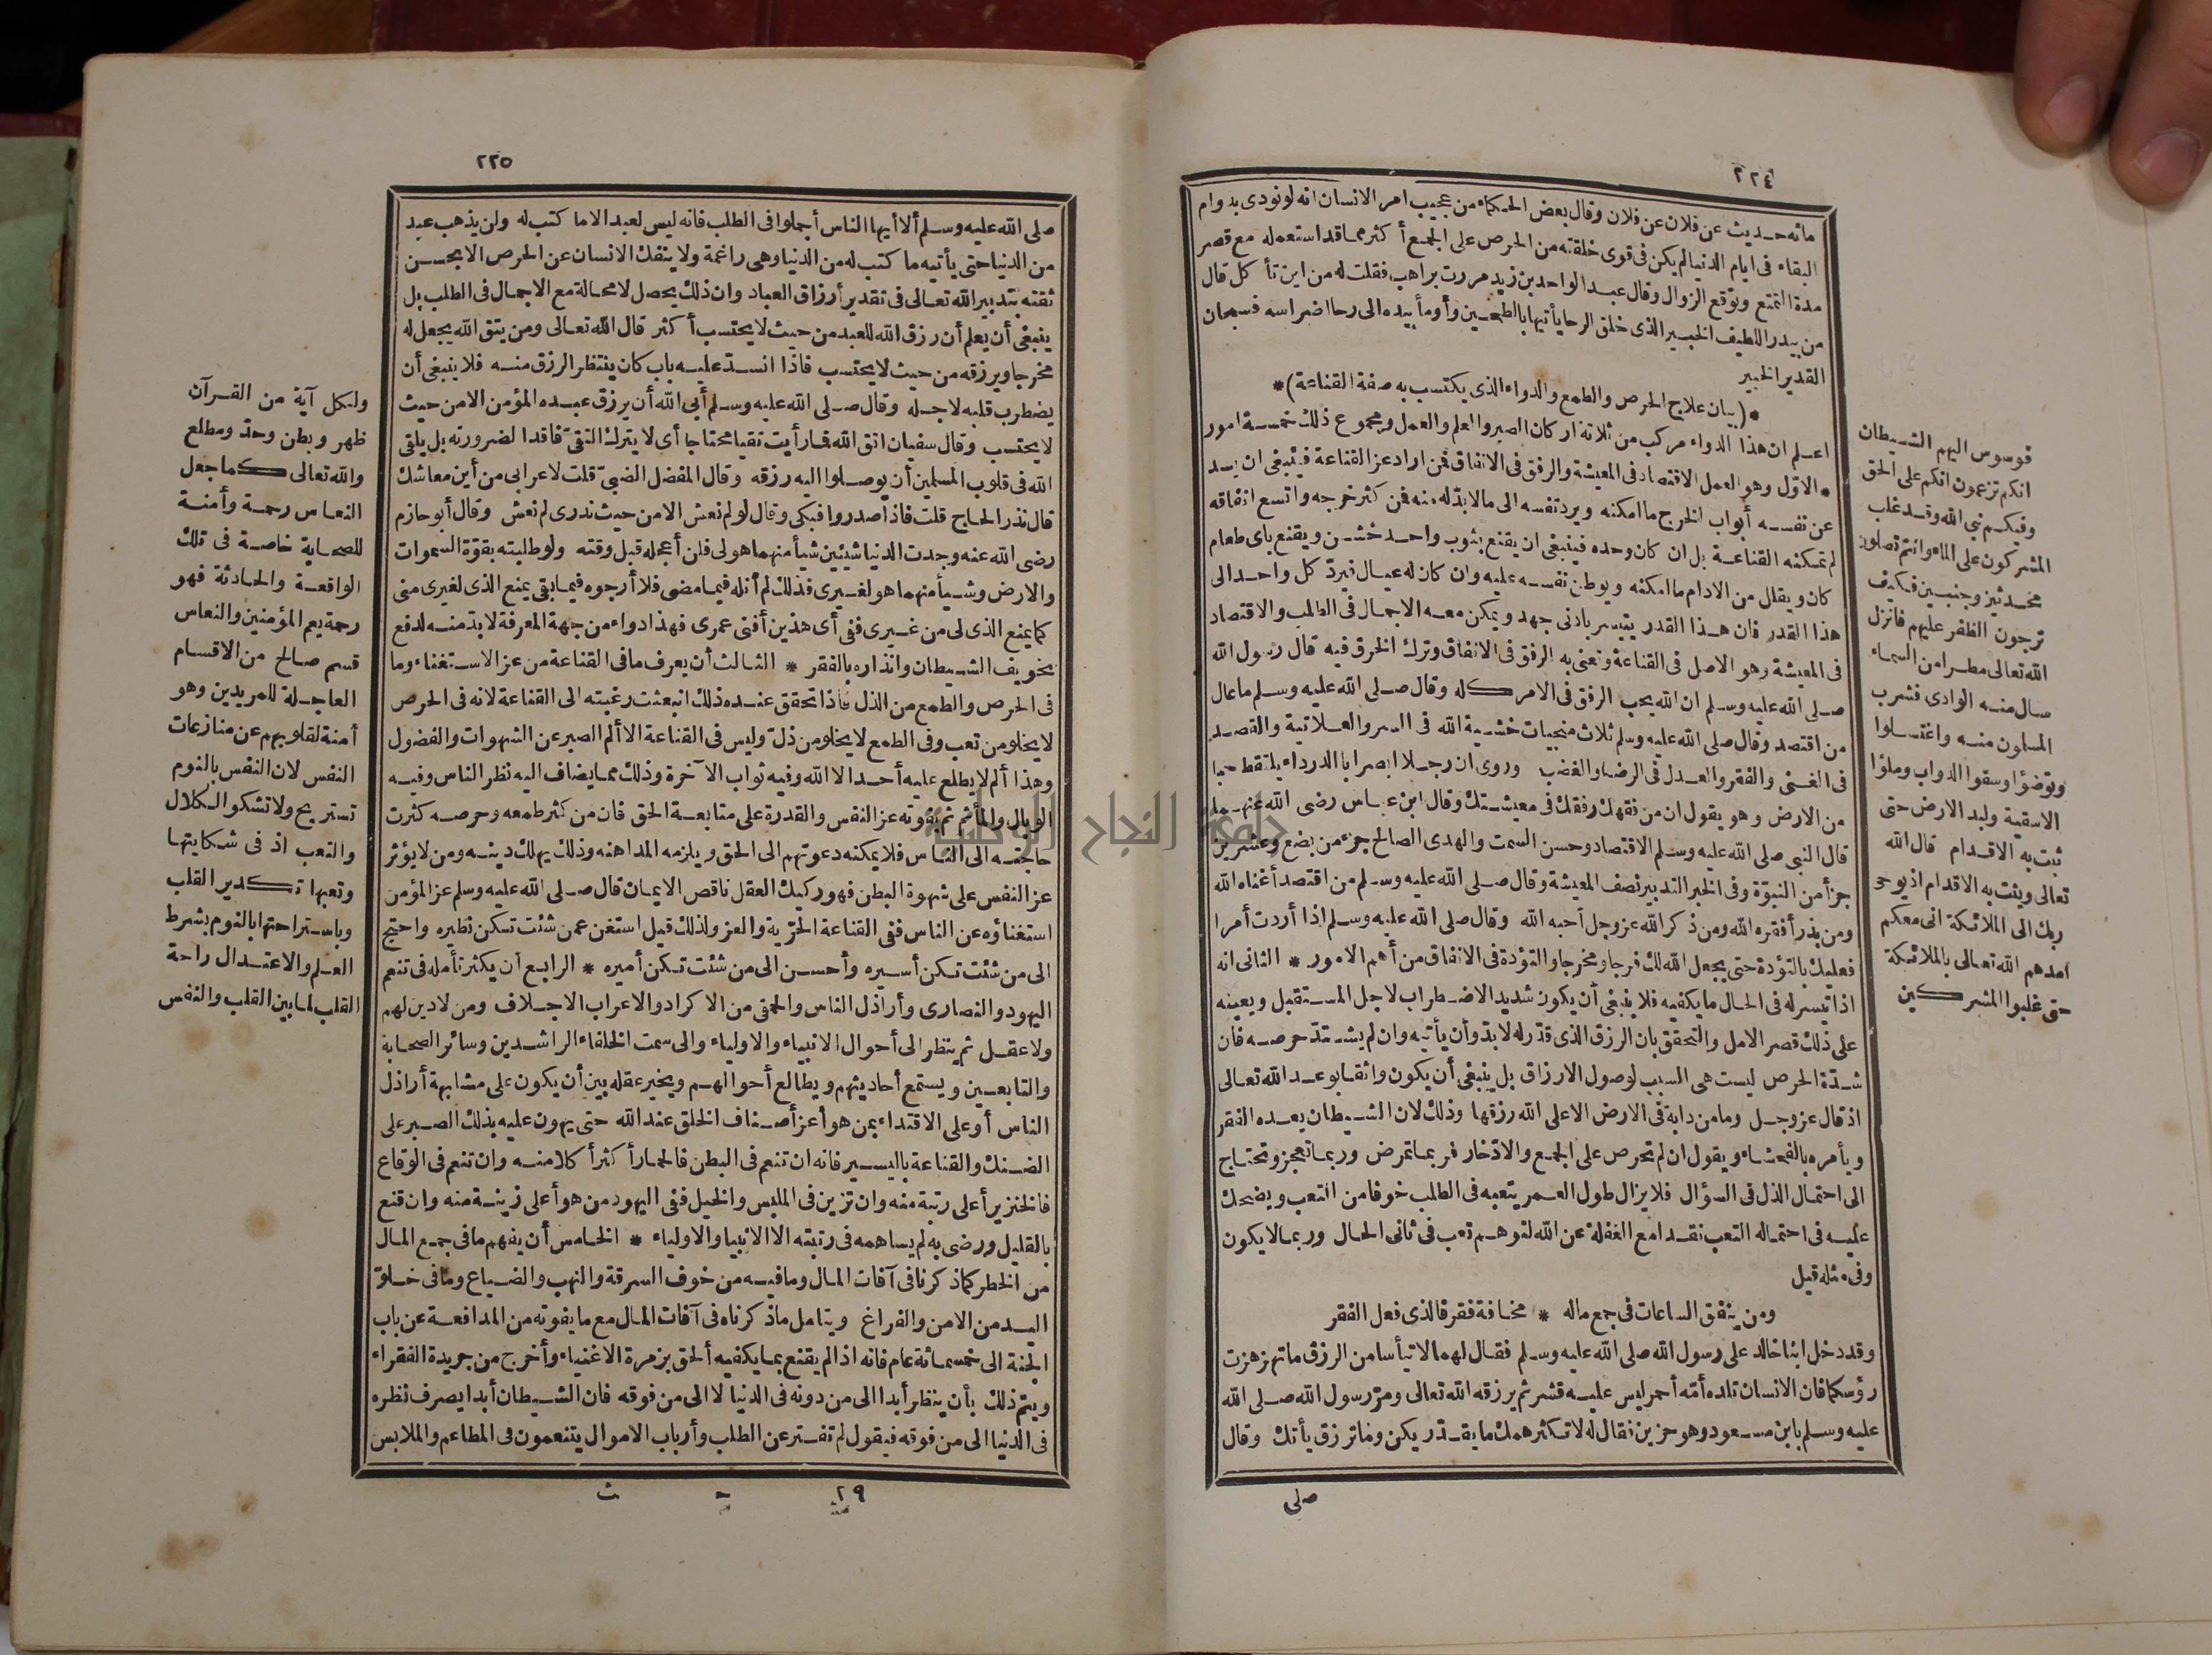 ٢٢٤
مائه حديث عن فلان عن فلان وقال بعض الحكماء من عجيب امر الانسان انه لو نودى بدوام
البقاء فى ايام الدنيا لم يكن فى قوى خلقته من الحرص على الجمع أكثر مما قد استعمله مع قصر
مدة التمتع وتوقع الزوال وقال عبد الواحد بن زيد مررت براهب فقلت له من اين تأكل قال
من بيدر اللطيف الخبير الذى خلق الرحا يأتيها بالطحين وأومأ بيده الى رحا اضراسه فسبحان
القدير الخبير
*(بيان علاج الحرص والطمع والدواء الذى يكتسب به صفة القناعة)*
اعلم ان هذا الدواء مركب من ثلاثة اركان الصبر والعلم والعمل ومجموع ذلك خمسة امور
* الاول وهو العمل الاقتصاد فى المعيشة والرفق فى الانفاق فمن اراد عز القناعة فينبغى ان يسد
عن نفسه أبواب الخرج ما امكنه ويرد نفسه الى ما لابد له منه فمن كثر خرجه واتسع انفاقه
لم تمكنه القناعة بل ان كان وحده فينبغى ان يقنع بثوب واحد خشن ويقنع باى طعام
كان ويقلل من الادام ما امكنه ويوطن نفسه عليه وان كان له عيال فيرد كل واحد الى
هذا القدر فان هذا القدر يتيسر بادنى جهد ويمكن معه الاجمال فى الطلب والاقتصاد
فى المعيشة وهو الاصل فى القناعة ونعنى به الرفق فى الانفاق وترك الخرق فيه قال رسول الله
صلى الله عليه وسلم ان الله يحب الرفق فى الامر كله وقال صلى الله عليه وسلم ما عال
من اقتصد وقال صلى الله عليه وسلم ثلاث منجيات خشية الله فى السر والعلانية والقصد
فى الغنى والفقر والعدل فى الرضا والغضب وروى ان رجلا ابصر ابا الدرداء يلتقط حبا
من الارض وهو يقول ان من فقهك رفقك فى معيشتك وقال ابن عباس رضى الله عنهما
قال النبى صلى الله عليه وسلم الاقتصاد وحسن السمت والهدى الصالح جزء من بضع وعشرين
جزأ من النبوّة وفى الخبر التدبير نصف المعيشة وقال صلى الله عليه وسلم من اقتصد أغناه الله
ومن بذر أفقره الله ومن ذكر الله عز وجل أحبه الله وقال صلى الله عليه وسلم اذا أردت أمرا
فعليك بالتؤدة حتى يجعل الله لك فرجا ومخرجا والتؤدة فى الانفاق من أهم الامور * الثانى انه
اذا تيسر له فى الحال ما يكفيه فلا ينبغى أن يكون شديد الاضطراب لاجل المستقبل ويعينه
على ذلك قصر الامل والتحقق بان الرزق الذى قدّر له لا بدّ وأن يأتيه وان لم يشتدّ حرصه فان
شدّة الحرص ليست هى السبب لوصول الارزاق بل ينبغى أن يكون واثقا بوعد الله تعالى
اذ قال عز وجل وما من دابة فى الارض الا على الله رزقها وذلك لان الشيطان يعده الفقر
ويأمره بالفحشاء ويقول ان لم تحرص على الجمع والادّخار فربما تمرض وربما تعجز وتحتاج
الى احتمال الذل فى السؤال فلا يزال طول العمر يتعبه فى الطلب خوفا من التعب ويضحك
عليه فى احتماله التعب نقدا مع الغفلة عن الله لتوهم تعب فى ثانى الحال وربما لا يكون
وفى مثله قيل
ومن ينفق الساعات فى جمع ماله * مخافة فقر فالذى فعل الفقر
وقد دخل ابنا خالد على رسول الله صلى الله عليه وسلم فقال لهما لا تيأسا من الرزق ما تهزهزت
رؤسكما فان الانسان تلده أمّه أحمر ليس عليه قشر ثم يرزقه الله تعالى ومرّ رسول الله صلى الله
عليه وسلم بابن مسعود وهو حزين فقال له لا تكثر همك ما يقدّر يكن وما ترزق يأتك وقال
صلى
فوسوس اليهم الشيطان
انكم تزعمون انكم على الحق
وفيكم نبى الله وقد غلب
المشركون على الماء وانتم تصلون
محدثين وجنبين فكيف
ترجون الظفر عليهم فانزل
الله تعالى مطرا من السماء
سال منه الوادى فشرب
المسلمون منه واغتسلوا
وتوضؤا وسقوا الدواب وملؤا
الاسقية ولبد الارض حتى
ثبت به الاقدام قال الله
تعالى ويثبت به الاقدام اذ يوحى
ربك الى الملائكة انى معكم
امدهم الله تعالى بالملائكة
حتى غلبوا المشركين
٢٢٥
صلى الله عليه وسلم ألا أيها الناس أجملوا فى الطلب فانه ليس لعبد الا ما كتب له ولن يذهب عبد
من الدنيا حتى يأتيه ما كتب له من الدنيا وهى راغمة ولا ينفك الانسان عن الحرص الا بحسن
ثقته بتدبير الله تعالى فى تقدير أرزاق العباد وان ذلك يحصل لا محالة مع الاجمال فى الطلب بل
ينبغى أن يعلم أن رزق الله للعبد من حيث لا يحتسب أكثر قال الله تعالى ومن يتق الله يجعل له
مخرجا ويرزقه من حيث لا يحتسب فاذا انسدّ عليه باب كان ينتظر الرزق منه فلا ينبغى أن
يضطرب قلبه لاجله وقال صلى الله عليه وسلم أبى الله أن يرزق عبده المؤمن الا من حيث
لا يحتسب وقال سفيان اتق الله فما رأيت تقيا محتاجا أى لا يترك التقىّ فاقدا لضرورته بل يلقى
الله فى قلوب المسلمين أن يوصلوا اليه رزقه وقال المفضل الضبىّ قلت لاعرابى من أين معاشك
قال نذر الحاج قلت فاذا صدروا فبكى وقال لو لم نعش الا من حيث ندرى لم نعش وقال أبو حازم
رضى الله عنه وجدت الدنيا شيئين شيأ منهما هو لى فلن أعجله قبل وقته ولو طلبته بقوّة السموات
والارض وشيأ منهما هو لغيرى فذلك لم أنله فيما مضى فلا أرجوه فيما بقى يمنع الذى لغيرى منى
كما يمنع الذى لى من غيرى ففى أى هذين أفنى عمرى فهذا دواء من جهة المعرفة لا بدّ منه لدفع
تخويف الشيطان وانذاره بالفقر * الثالث أن يعرف ما فى القناعة من عز الاستغناء وما
فى الحرص والطمع من الذل فاذا تحقق عنده ذلك انبعثت رغبته الى القناعة لانه فى الحرص
لا يخلو من تعب وفى الطمع لا يخلو من ذلّ وليس فى القناعة الا ألم الصبر عن الشهوات والفضول
وهذا ألم لا يطلع عليه أحد الا الله وفيه ثواب الآخرة وذلك مما يضاف اليه نظر الناس وفيه
الوبال والمأثم ثم يفوته عز النفس والقدرة على متابعة الحق فان من كثر طمعه وحرصه كثرت
حاجته الى الناس فلا يمكنه دعوتهم الى الحق ويلزمه المداهنة وذلك يهلك دينه ومن لا يؤثر
عز النفس على شهوة البطن فهو ركيك العقل ناقص الايمان قال صلى الله عليه وسلم عز المؤمن
استغناؤه عن الناس ففى القناعة الحرّية والعز ولذلك قيل استغن عمن شئت تكن نظيره واحتج
الى من شئت تكن أسيره وأحسن الى من شئت تكن أميره * الرابع أن يكثر تأمله فى تنعم
اليهود والنصارى وأراذل الناس والحمقى من الاكراد والاعراب الاجلاف ومن لا دين لهم
ولا عقل ثم ينظر الى أحوال الانبياء والاولياء والى سمت الخلفاء الراشدين وسائر الصحابة
والتابعين ويستمع أحاديثهم ويطالع أحوالهم ويخير عقله بين أن يكون على مشابهة أراذل
الناس أو على الاقتداء بمن هو أعز أصناف الخلق عند الله حتى يهون عليه بذلك الصبر على
الضنك والقناعة باليسير فانه ان تنعم فى البطن فالحمار أكثر أكلا منه وان تنعم فى الوقاع
فالخنزير أعلى رتبة منه وان تزين فى الملبس والخيل ففى اليهود من هو أعلى زينة منه وان قنع
بالقليل ورضى به لم يساهمه فى رتبته الا الانبيا والاولياء * الخامس أن يفهم ما فى جمع المال
من الخطر كما ذكرنا فى آفات المال وما فيه من خوف السرقة والنهب والضياع وما فى خلوّ
اليد من الامن والفراغ ويتامل ما ذكرناه فى آفات المال مع ما يفوته من المدافعة عن باب
الجنة الى خمسمائة عام فانه اذا لم يقنع بما يكفيه ألحق بزمرة الاغنياء وأخرج من جريدة الفقراء
ويتمّ ذلك بأن ينظر أبدا الى من دونه فى الدنيا لا الى من فوقه فان الشيطان أبدا يصرف نظره
فى الدنيا الى من فوقه فيقول لم تفتر عن الطلب وأرباب الاموال يتنعمون فى المطاعم والملابس
٢٩ ح ث
ولكل آية من القرآن
ظهر وبطن وحدّ ومطلع
والله تعالى كما جعل
النعاس رحمة وأمنة
للصحابة خاصة فى تلك
الواقعة والحادثة فهو
رحمة يعم المؤمنين والنعاس
قسم صالح من الاقسام
العاجلة للمريدين وهو
أمنة لقلوبهم عن منازعات
النفس لان النفس بالنوم
تستريح ولا تشكو الكلال
والتعب اذ فى شكايتها
وتعبها تكدير القلب
وباستراحتها بالنوم بشرط
العلم والاعتدال راحة
القلب لما بين القلب والنفس
جامعة النجاح الوطنية